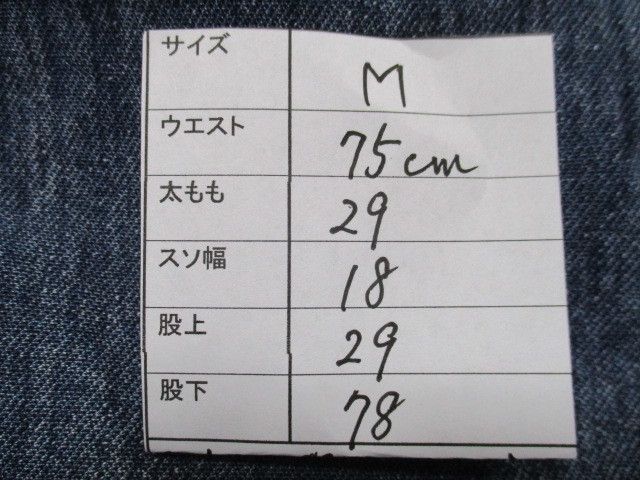 サイズ M
ウエスト 75cm
太もも 29
スソ幅 18
股上 29
股下 78